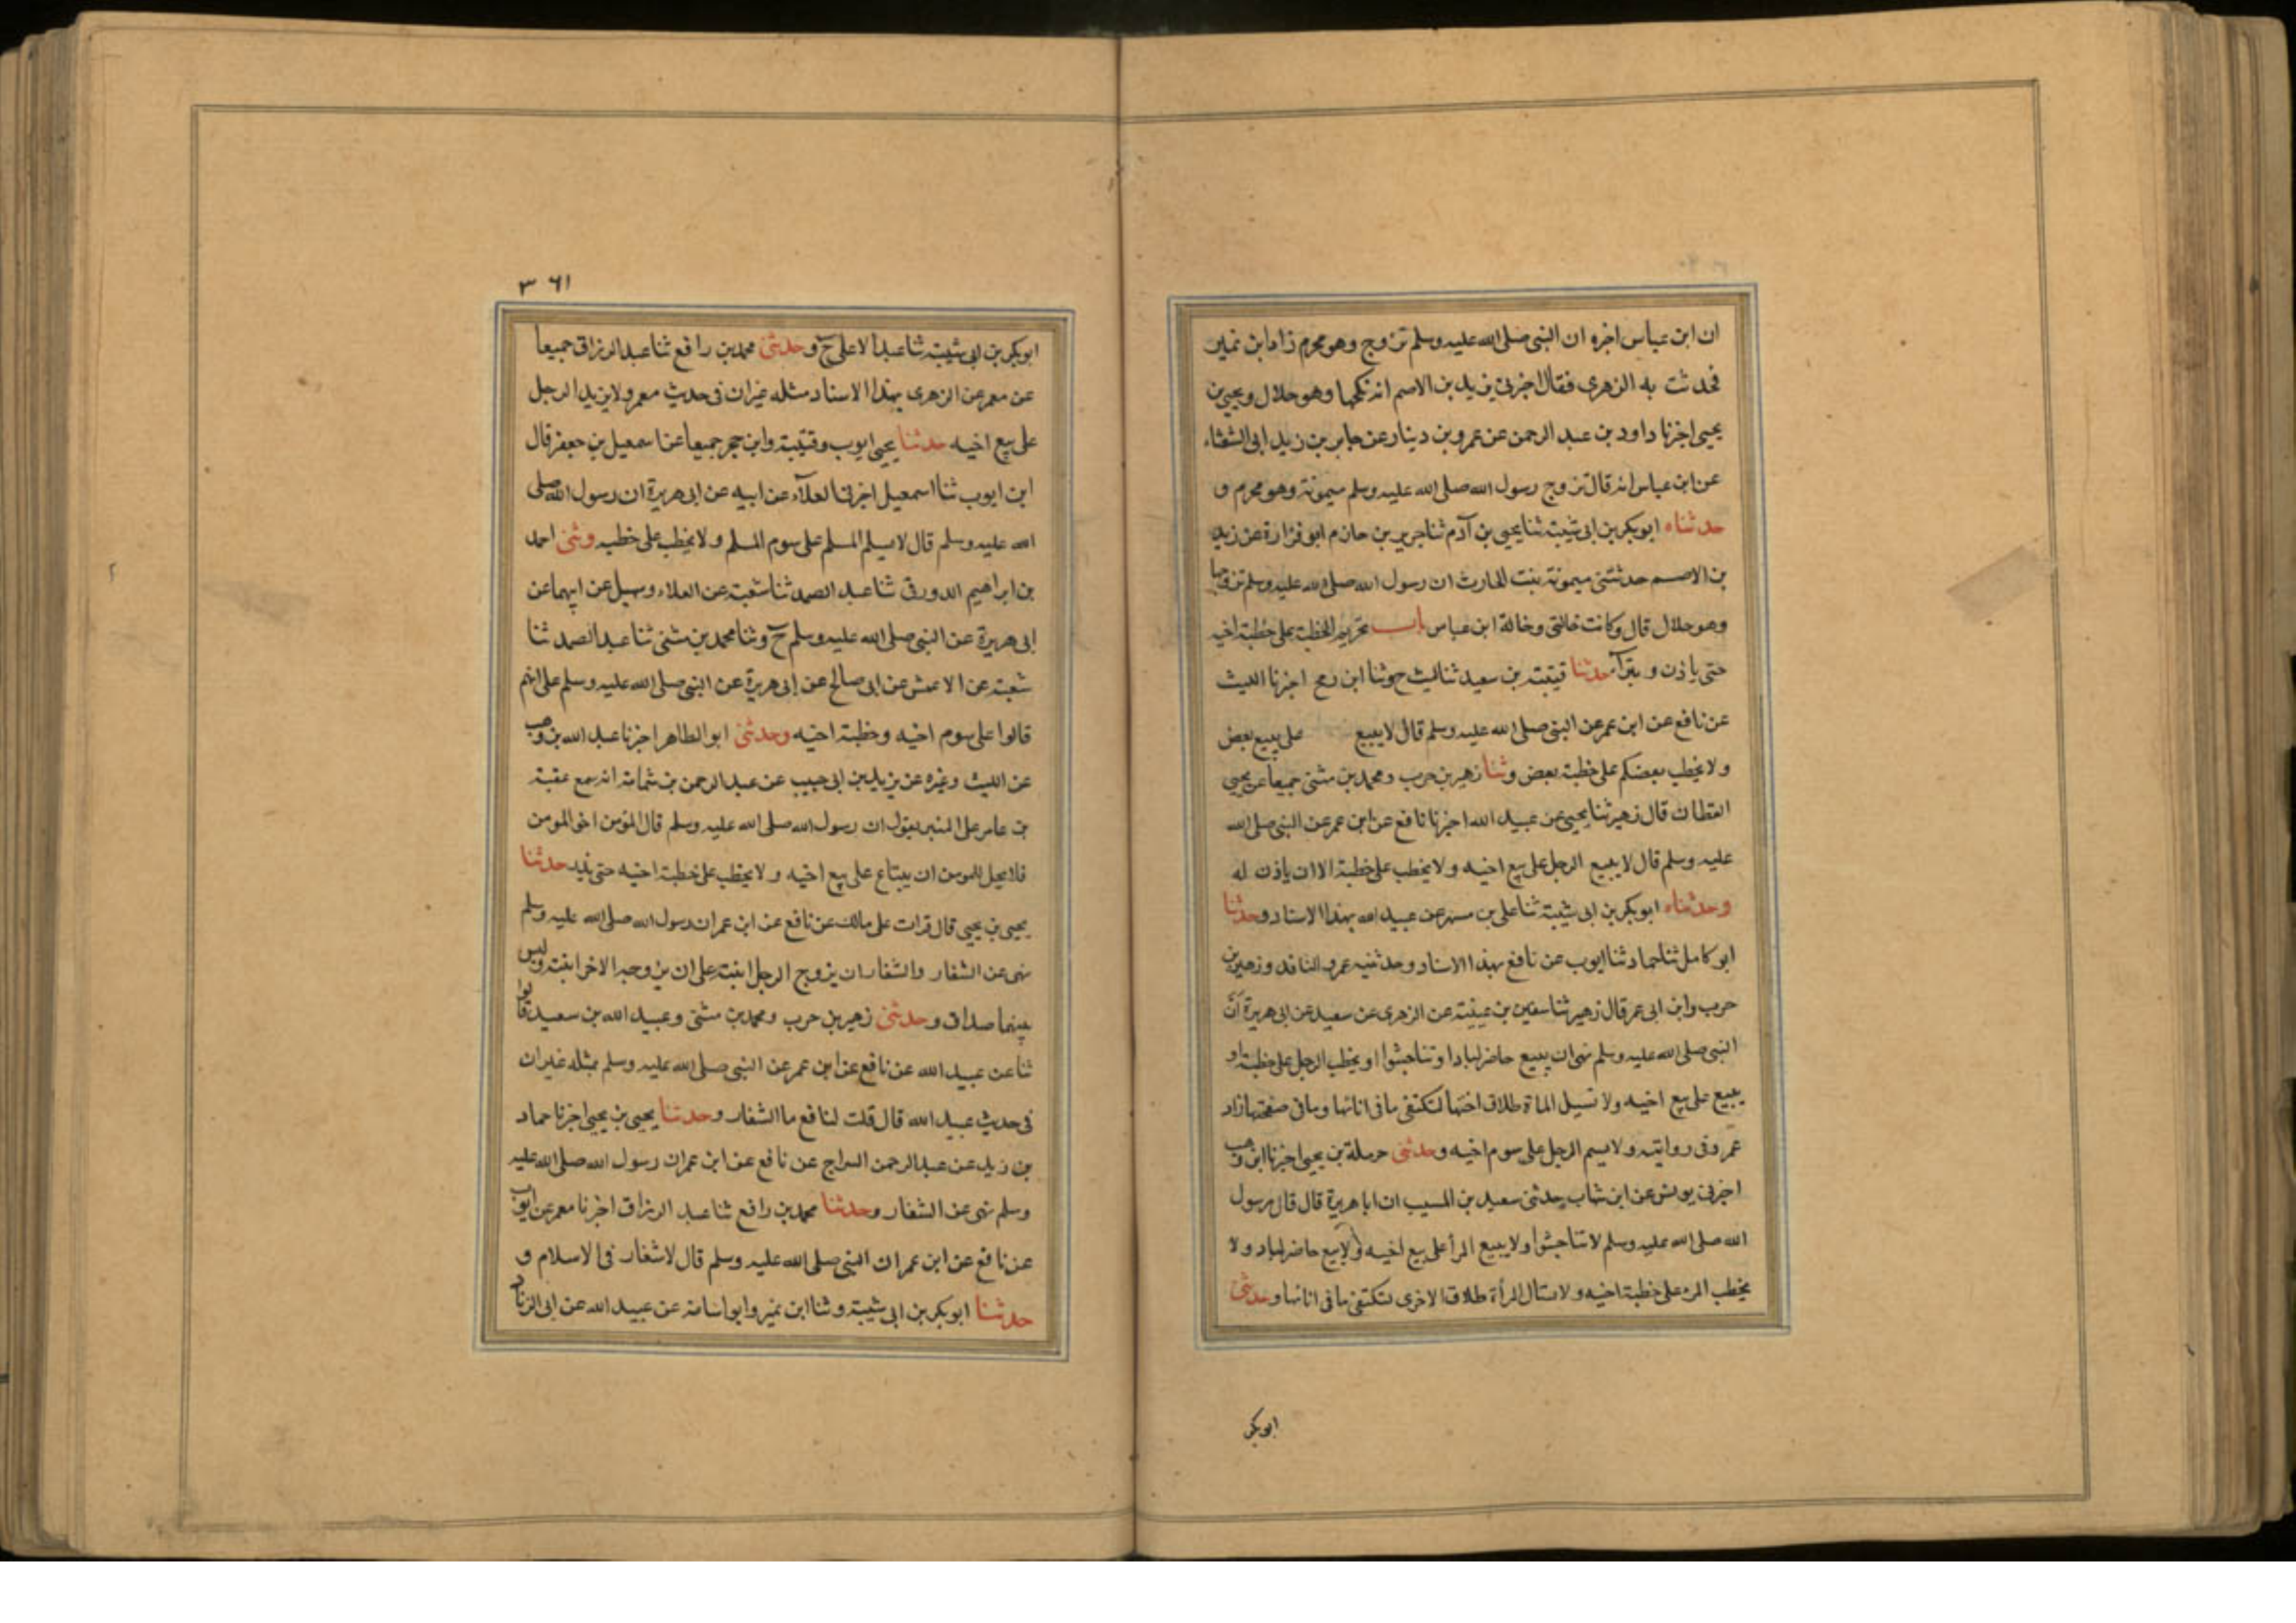 ان ابن عباس اخبره ان النبى صلى الله عليه وسلم تزوج وهو محرم زاد ابن نمير
فحدثت به الزهرى فقال اخبرنى يزيد بن الاصم انه نكحها وهو حلال ويحيى بن
يحيى اخبرنا داود بن عبد الرحمن عن عمرو بن دينار عن جابر بن زيد ابى الشعثاء
عن ابن عباس انه قال تزوج رسول الله صلى الله عليه وسلم ميمونة وهو محرم و
حدثناه ابوبكر بن ابى شيبة ثنا يحيى بن آدم ثنا جرير بن حازم ابو فزارة عن زيد
بن الاصم حدثتنى ميمونة بنت الحارث ان رسول الله صلى الله عليه وسلم تزوجها
وهو حلال قال وكانت خالتى وخالة ابن عباس باب تحريم الخطبة على خطبة اخيه
حتى ياذن و يترك حدثنا قتيبة بن سعيد ثنا ليث ح وثنا ابن رمح اخبرنا الليث
عن نافع عن ابن عمر عن النبى صلى الله عليه وسلم قال لا يبيع على بيع بعض
ولا يخطب بعضكم على خطبة بعض وثنا زهير بن حرب ومحمد بن مثنى جميعا عن يحيى
القطان قال زهير ثنا يحيى عن عبيد الله اخبرنا نافع عن ابن عمر عن النبى صلى الله
عليه وسلم قال لا يبيع الرجل على بيع اخيه ولا يخطب على خطبة الا ان ياذن له
وحدثناه ابوبكر بن ابى شيبة ثنا على بن مسهر عن عبيد الله بهذا الاسناد وحدثنا
ابو كامل ثنا حماد ثنا ايوب عن نافع بهذا الاسناد وحدثنيه عمرو الناقد وزهير بن
حرب وابن ابى عمر قال زهير ثنا سفين بن عيينة عن الزهرى عن سعيد عن ابى هريرة ان
النبى صلى الله عليه وسلم نهى ان يبيع حاضر لباد او تناجشوا او يخطب الرجل على خطبة او
يبيع على بيع اخيه ولا تسيل الماة طلاق اختها لتكتفى ما فى انائها وما فى صفحتها زاد
عمرو فى روايته ولا يسم الرجل على سوم اخيه وحدثنى حرملة بن يحيى اخبرنا ابن وهب
اخبرنى يونس عن ابن شهاب حدثنى سعيد بن المسيب ان ابا هريرة قال قال رسول
الله صلى الله عليه وسلم لا تناجشوا ولا يبيع المرأ على بيع اخيه ولا يبيع حاضر لباد ولا
يخطب المرء على خطبة اخيه ولا تسال المرأة طلاق الاخرى لتكتفى ما فى انائها وحدثنى
ابوبكر
٣٦١
ابوبكر بن ابى شيبة ثنا عبد الاعلى ح وحدثنى محمد بن رافع ثنا عبد الرزاق جميعا
عن معمر عن الزهرى بهذا الاسناد مثله غير ان فى حديث معمر ولا يزيد الرجل
على بيع اخيه حدثنا يحيى ايوب وقتيبة وابن حجر جميعا عن اسمعيل بن جعفر قال
ابن ايوب ثنا اسمعيل اخبرنى العلآء عن ابيه عن ابى هريرة ان رسول الله صلى
الله عليه وسلم قال لا يسلم المسلم على سوم المسلم ولا يخطب على خطبه وثنى احمد
بن ابراهيم الدورقى ثنا عبد الصمد ثنا شعبة عن العلاء وسهيل عن ابيهما عن
ابى هريرة عن النبى صلى الله عليه وسلم ح وثنا محمد بن مثنى ثنا عبد الصمد ثنا
شعبة عن الاعمش عن ابى صالح عن ابى هريرة عن النبى صلى الله عليه وسلم على انهم
قالوا على سوم اخيه وخطبة اخيه وحدثنى ابو الطاهر اخبرنا عبد الله بن وهب
عن الليث وغيره عن يزيد بن ابى حبيب عن عبد الرحمن بن شماسة انه سمع عقبة
بن عامر على المنبر يقول ان رسول الله صلى الله عليه وسلم قال المؤمن اخو المومن
فلا يحل للمومن ان يبتاع على بيع اخيه ولا يخطب على خطبة اخيه حتى يذر حدثنا
يحيى بن يحيى قال قرات على مالك عن نافع عن ابن عمر ان رسول الله صلى الله عليه وسلم
نهى عن الشغار والشغار ان يزوج الرجل ابنته على ان يزوجه الاخر ابنته وليس
بينهما صداق وحدثنى زهير بن حرب ومحمد بن مثنى وعبيد الله بن سعيد قالوا
ثنا عن عبيد الله عن نافع عن ابن عمر عن النبى صلى الله عليه وسلم بمثله غير ان
فى حديث عبيد الله قال قلت لنافع ما الشغار وحدثنا يحيى بن يحيى اخبرنا حماد
بن زيد عن عبد الرحمن السراج عن نافع عن ابن عمر ان رسول الله صلى الله عليه
وسلم نهى عن الشغار وحدثنا محمد بن رافع ثنا عبد الرزاق اخبرنا معمر عن ايوب
عن نافع عن ابن عمر ان النبى صلى الله عليه وسلم قال لا شغار فى الاسلام و
حدثنا ابوبكر بن ابى شيبة وثنا ابن نمير وابو اسامة عن عبيد الله عن ابى الزناد